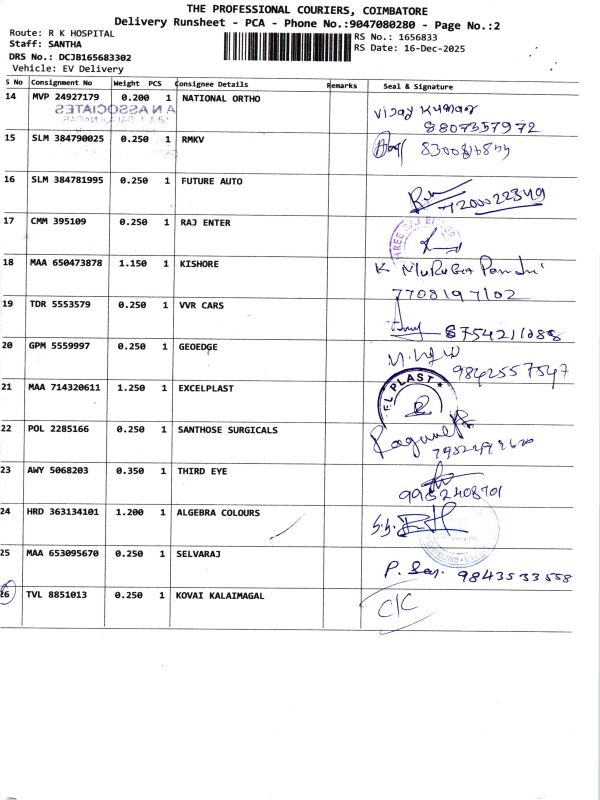 THE PROFESSIONAL COURIERS, COIMBATORE
Delivery Runsheet - PCA - Phone No.:9047080280 - Page No.:2
Route: R K HOSPITAL
Staff: SANTHA
DRS No.: DCJB165683302
Vehicle: EV Delivery
RS No.: 1656833
RS Date: 16-Dec-2025
S No Consignment No Weight PCS Consignee Details Remarks Seal & Signature
14 MVP 24927179 0.200 1 NATIONAL ORTHO Vijay Kumar
8807357972
A N ASSOCIATES
15 SLM 384790025 0.250 1 RMKV
16 SLM 384781995 0.250 1 FUTURE AUTO 7200022349
17 CMM 395109 0.250 1 RAJ ENTER
18 MAA 650473878 1.150 1 KISHORE K Muruga Pandi
7708197102
19 TDR 5553579 0.250 1 VVR CARS 8754211088
20 GPM 5559997 0.250 1 GEOEDGE
9842557547
21 MAA 714320611 1.250 1 EXCELPLAST
EL PLAST ★
22 POL 2285166 0.250 1 SANTHOSE SURGICALS
23 AWY 5068203 0.350 1 THIRD EYE
9952408701
24 HRD 363134101 1.200 1 ALGEBRA COLOURS
25 MAA 653095670 0.250 1 SELVARAJ
P. 9843533558
26 TVL 8851013 0.250 1 KOVAI KALAIMAGAL C/C